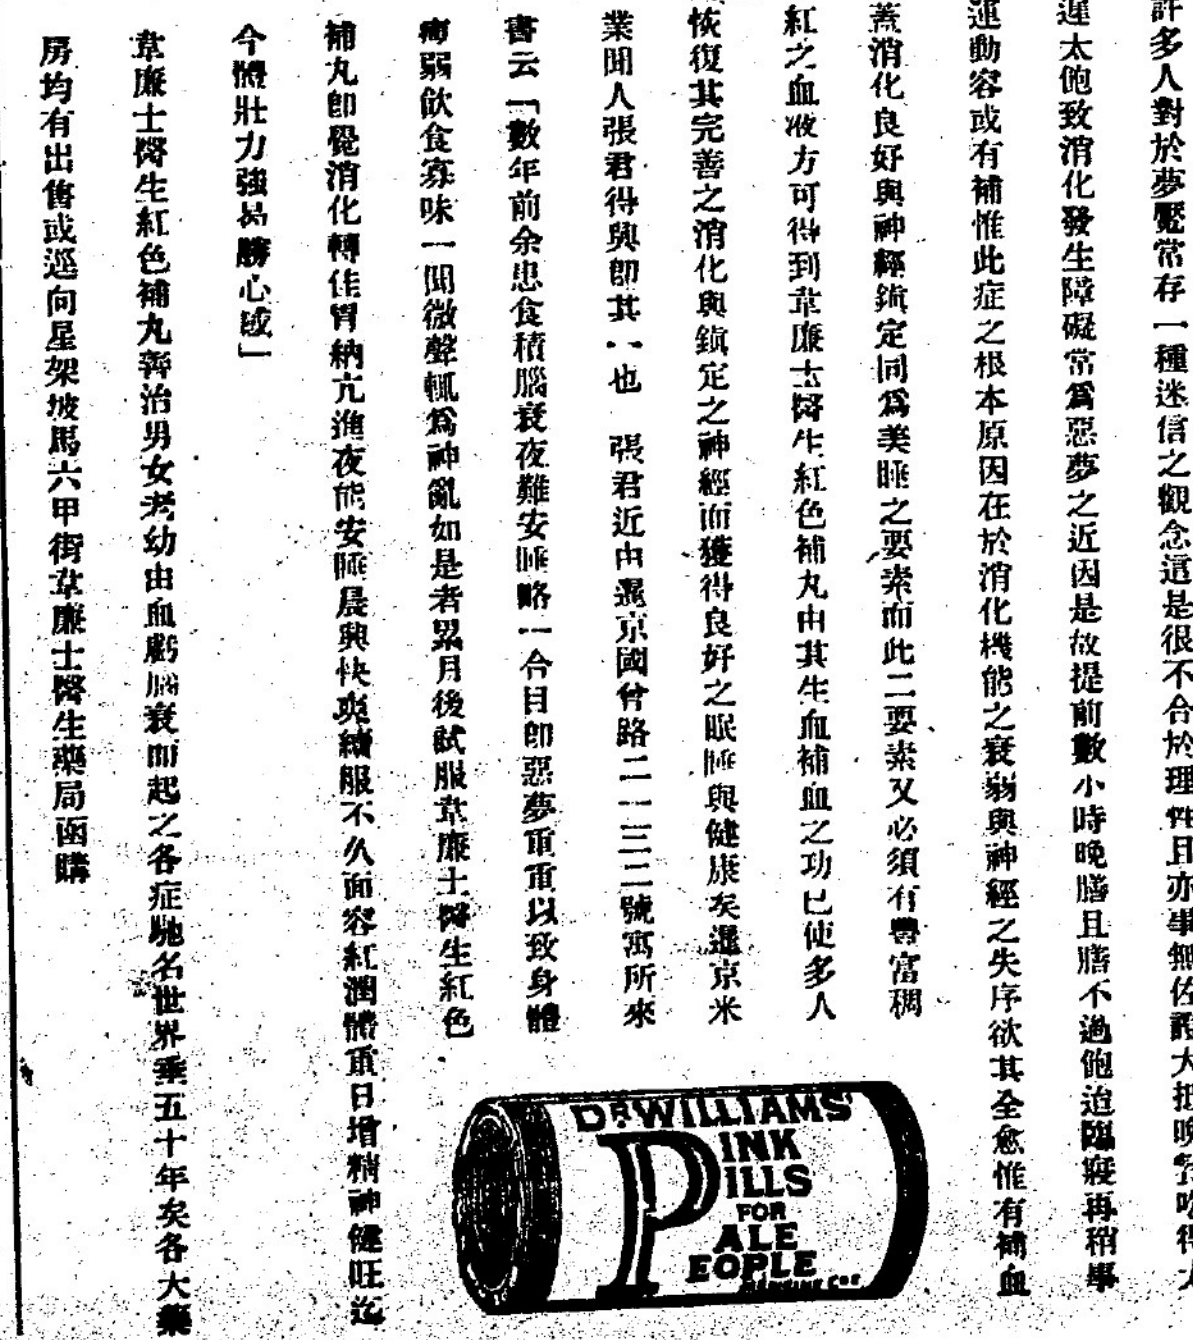 許多人對於夢魘常存一種迷信之觀念這是很不合於理性且亦事無佐證大抵晚餐吃得太
遲太飽致消化發生障礙常爲惡夢之近因是故提前數小時晚膳且膳不過飽迨臨寢再稍事
運動容或有補惟此症之根本原因在於消化機能之衰弱與神經之失序欲其全愈惟有補血
蓋消化良好與神經鎮定同爲美睡之要素而此二要素又必須有豐富稠
紅之血液方可得到韋廉士醫生紅色補丸由其生血補血之功已使多人
恢復其完善之消化與鎮定之神經而獲得良好之眠睡與健康矣暹京米
業聞人張君得興卽其一也 張君近由暹京國會路二一三二號寓所來
書云「數年前余患食積腦衰夜難安睡略一合目卽惡夢重重以致身體
瘠弱飲食寡味一聞微聲輒爲神亂如是者累月後試服韋廉士醫生紅色
補丸卽覺消化轉佳胃納亢進夜能安睡晨興快爽續服不久面容紅潤體重日增精神健旺迄
今體壯力強曷勝心感」
韋廉士醫生紅色補丸專治男女老幼由血虧腦衰而起之各症馳名世界垂五十年矣各大藥
房均有出售或逕向星架坡馬六甲街韋廉士醫生藥局函購
DR WILLIAMS'
PINK
PILLS
FOR
PALE
PEOPLE